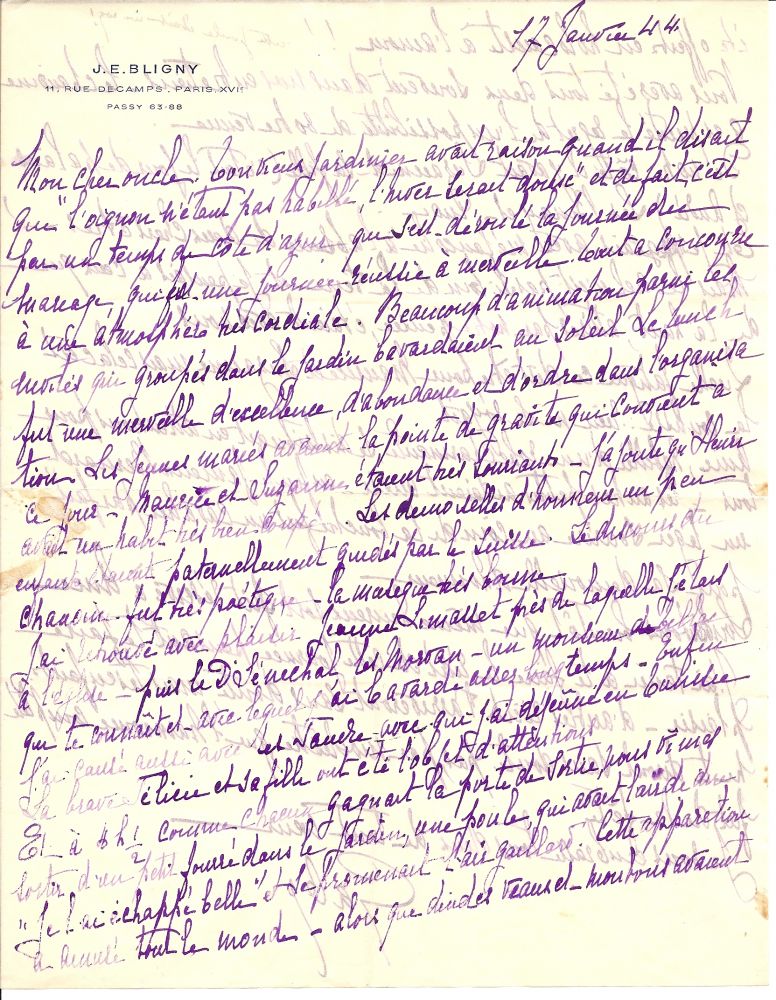 17 Janvier 44.
J. E. BLIGNY
11, RUE DECAMPS. PARIS. XVIe
PASSY 63-88
Mon cher oncle. Ton vieux jardinier avait raison quand il disait
que "l'oignon n'étant pas habillé, l'hiver serait doux" et de fait, c'est
par un temps de côte d'azur que s'est déroulé la journée du
mariage, qui fut une journée réussie à merveille. Tout a concouru
à une atmosphère très cordiale. Beaucoup d'animation parmi les
invités qui groupés dans le jardin bavardaient au soleil. Le lunch
fut une merveille d'excellence, d'abondance et d'ordre dans l'organisa
tion. Les jeunes mariés avaient la pointe de gravité qui convient à
ce jour - Maurice et Suzanne étaient très souriants - J'ajoute qu'Henri
avait un habit très bien coupé. Les demoiselles d'honneur un peu
enfants étaient paternellement guidés par le Suisse. Le discours du
chanoine fut très poétique - la musique très bonne
J'ai retrouvé avec plaisir Jeanne Limasset près de laquelle j'étais
à l'église - puis le Dr Sénéchal les Morvan - un monsieur de
qui te connaît et avec lequel j'ai bavardé assez longtemps - Enfin
J'ai causé aussi avec les avec qui j'ai déjeuné en
La brave Élicie et sa fille ont été l'objet d'attentions
Et à comme chacun gagnait la porte de sortie, nous vîmes
sortir d'un petit fourré dans le jardin, une poule, qui avait l'air de dire
"Je l'ai échappé belle" et se promenait l'air gaillard. Cette apparition
a amusé tout le monde - alors que dindes veaux et moutons avaient